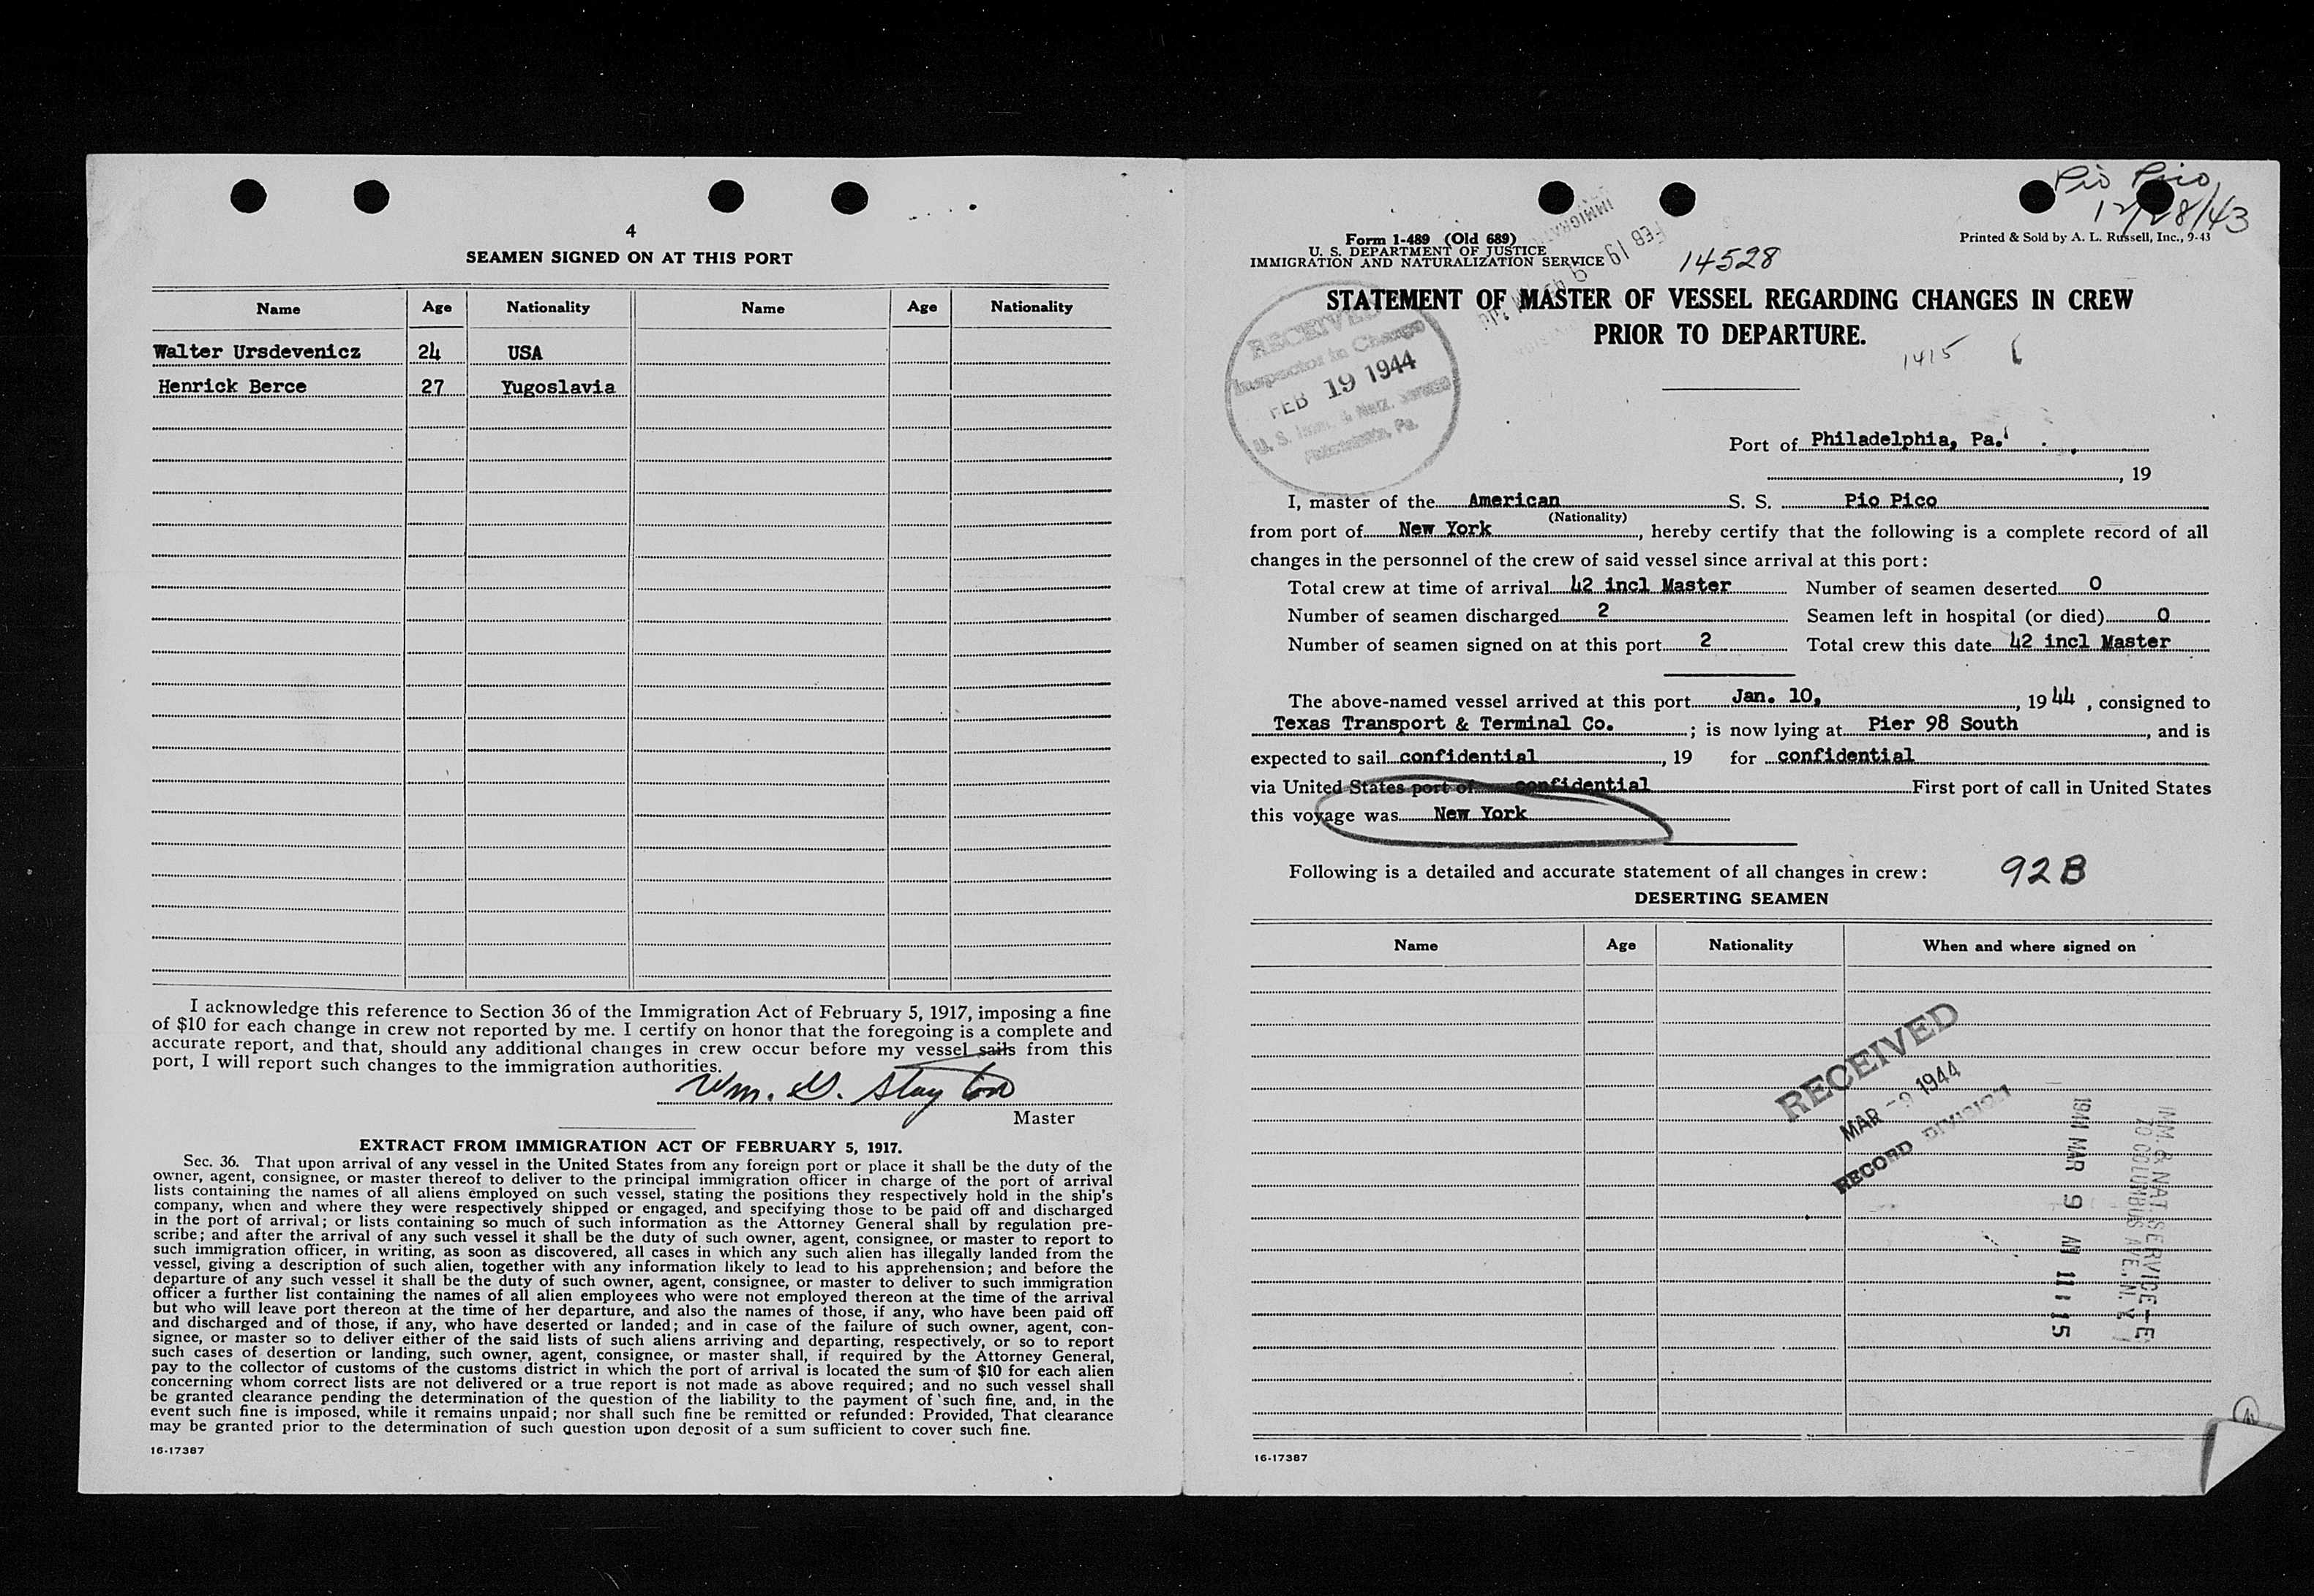 4
SEAMEN SIGNED ON AT THIS PORT
Name Age Nationality Name Age Nationality
Walter Ursdevenicz 24 USA
Henrick Berce 27 Yugoslavia
I acknowledge this reference to Section 36 of the Immigration Act of February 5, 1917, imposing a fine
of $10 for each change in crew not reported by me. I certify on honor that the foregoing is a complete and
accurate report, and that, should any additional changes in crew occur before my vessel sails from this
port, I will report such changes to the immigration authorities.
Wm. G. Stayton
Master
EXTRACT FROM IMMIGRATION ACT OF FEBRUARY 5, 1917.
Sec. 36. That upon arrival of any vessel in the United States from any foreign port or place it shall be the duty of the
owner, agent, consignee, or master thereof to deliver to the principal immigration officer in charge of the port of arrival
lists containing the names of all aliens employed on such vessel, stating the positions they respectively hold in the ship's
company, when and where they were respectively shipped or engaged, and specifying those to be paid off and discharged
in the port of arrival; or lists containing so much of such information as the Attorney General shall by regulation pre-
scribe; and after the arrival of any such vessel it shall be the duty of such owner, agent, consignee, or master to report to
such immigration officer, in writing, as soon as discovered, all cases in which any such alien has illegally landed from the
vessel, giving a description of such alien, together with any information likely to lead to his apprehension; and before the
departure of any such vessel it shall be the duty of such owner, agent, consignee, or master to deliver to such immigration
officer a further list containing the names of all alien employees who were not employed thereon at the time of the arrival
but who will leave port thereon at the time of her departure, and also the names of those, if any, who have been paid off
and discharged and of those, if any, who have deserted or landed; and in case of the failure of such owner, agent, con-
signee, or master so to deliver either of the said lists of such aliens arriving and departing, respectively, or so to report
such cases of desertion or landing, such owner, agent, consignee, or master shall, if required by the Attorney General,
pay to the collector of customs of the customs district in which the port of arrival is located the sum of $10 for each alien
concerning whom correct lists are not delivered or a true report is not made as above required; and no such vessel shall
be granted clearance pending the determination of the question of the liability to the payment of such fine, and, in the
event such fine is imposed, while it remains unpaid; nor shall such fine be remitted or refunded: Provided, That clearance
may be granted prior to the determination of such question upon deposit of a sum sufficient to cover such fine.
16-17387
Pio Pico
12/28/43
Form 1-489 (Old 689)
U. S. DEPARTMENT OF JUSTICE
IMMIGRATION AND NATURALIZATION SERVICE
Printed & Sold by A. L. Russell, Inc., 9-43
14528
STATEMENT OF MASTER OF VESSEL REGARDING CHANGES IN CREW
PRIOR TO DEPARTURE.
1415
RECEIVED
Inspector in Charge
FEB 19 1944
U. S. Imm. & Natz. Service
Philadelphia, Pa.
Port of Philadelphia, Pa.
, 19
I, master of the American S. S. Pio Pico
(Nationality)
from port of New York , hereby certify that the following is a complete record of all
changes in the personnel of the crew of said vessel since arrival at this port:
Total crew at time of arrival 42 incl Master Number of seamen deserted 0
Number of seamen discharged 2 Seamen left in hospital (or died) 0
Number of seamen signed on at this port 2 Total crew this date 42 incl Master
The above-named vessel arrived at this port Jan. 10, , 1944 , consigned to
Texas Transport & Terminal Co. ; is now lying at Pier 98 South , and is
expected to sail confidential , 19 for confidential
via United States port of confidential First port of call in United States
this voyage was New York
Following is a detailed and accurate statement of all changes in crew: 92B
DESERTING SEAMEN
Name Age Nationality When and where signed on
RECEIVED
MAR -9 1944
RECORD DIVISION
1944 MAR 9 AM 11 15
IMM. & NAT. SERVICE
70 COLUMBUS AVE., N. Y.
16-17387